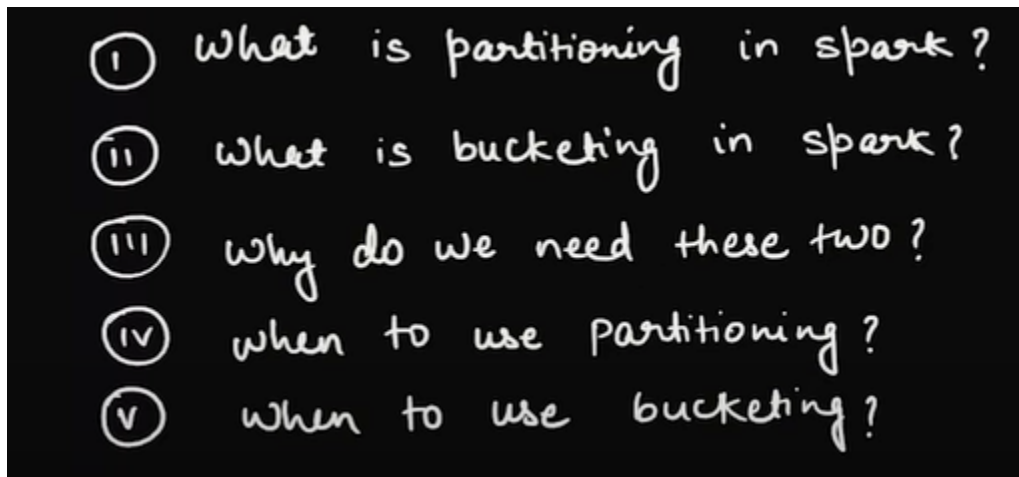 I What is partitioning in spark ?
II what is bucketing in spark ?
III why do we need these two ?
IV when to use partitioning ?
V when to use bucketing ?